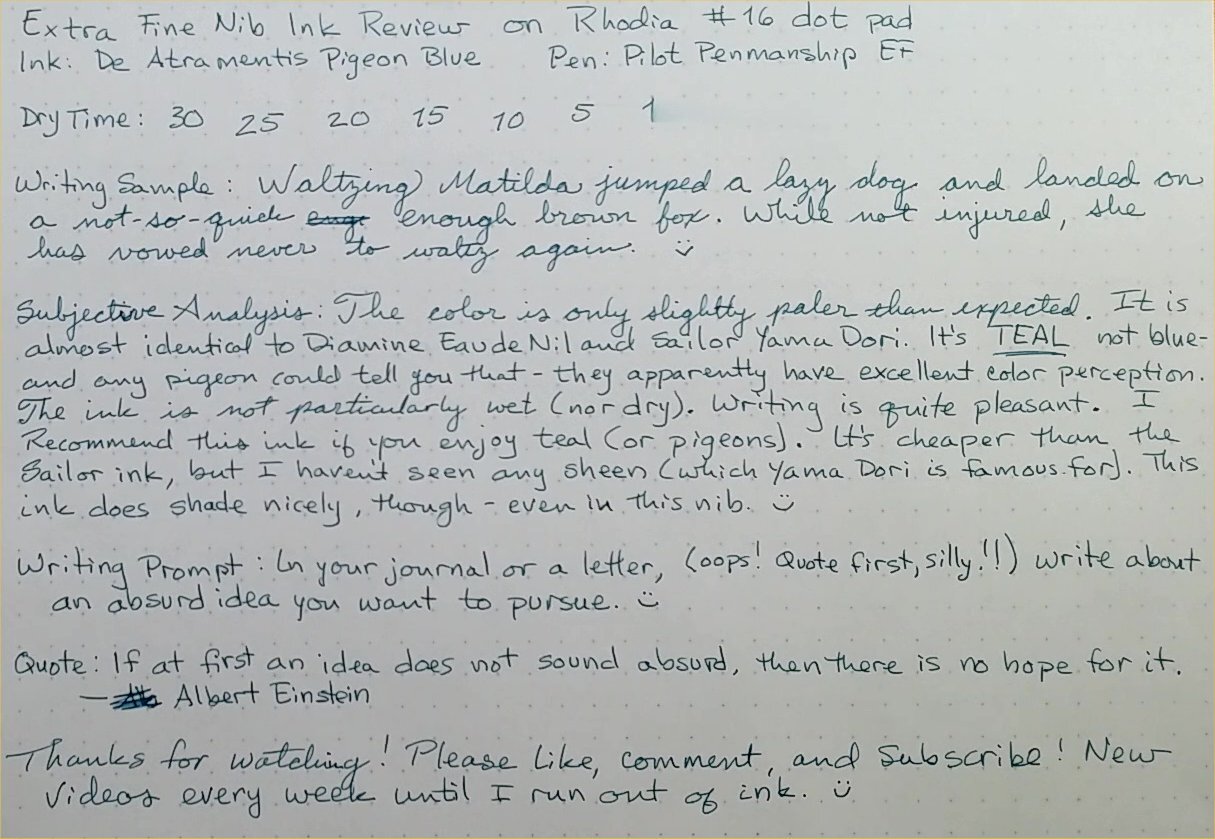 Extra Fine Nib Ink Review on Rhodia #16 dot pad
Ink: De Atramentis Pigeon Blue Pen: Pilot Penmanship EF
Dry Time: 30 25 20 15 10 5 1
Writing Sample: Waltzing Matilda jumped a lazy dog and landed on
a not-so-quick enough brown fox. While not injured, she
has vowed never to waltz again. :)
Subjective Analysis: The color is only slightly paler than expected. It is
almost identical to Diamine Eau de Nil and Sailor Yama Dori. It's TEAL not blue-
and any pigeon could tell you that - they apparently have excellent color perception.
The ink is not particularly wet (nor dry). Writing is quite pleasant. I
Recommend this ink if you enjoy teal (or pigeons). It's cheaper than the
Sailor ink, but I haven't seen any sheen (which Yama Dori is famous for). This
ink does shade nicely, though - even in this nib. :)
Writing Prompt: In your journal or a letter, (oops! Quote first, silly!!) write about
an absurd idea you want to pursue. :)
Quote: If at first an idea does not sound absurd, then there is no hope for it.
— Albert Einstein
Thanks for watching! Please Like, comment, and Subscribe! New
Videos every week until I run out of ink. :)